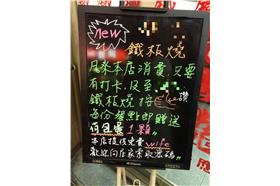 new
鐵板燒
凡來本店消費,只要
有打卡,及至
鐵板燒按 讚
每份餐點即贈送
荷包蛋1顆"
本店提供免費wife
歡迎向店家索取密碼"